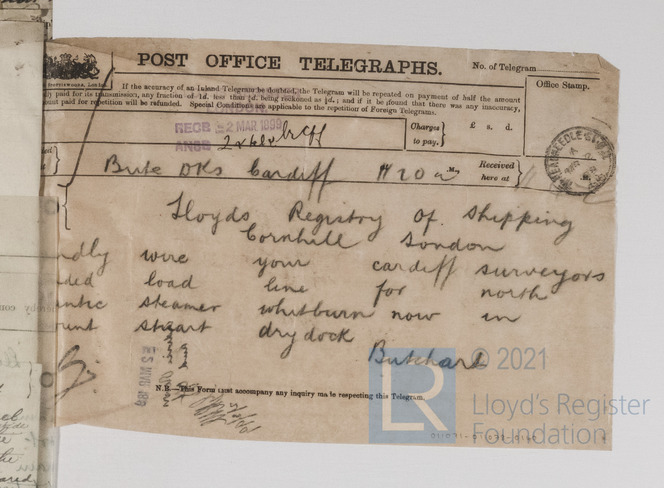 POST OFFICE TELEGRAPHS.
No. of Telegram
If the accuracy of an Inland Telegram be doubted, the Telegram will be repeated on payment of half the amount
paid for its transmission, any fraction of 1d. less than ½d. being reckoned as ½d.; and if it be found that there was any inaccuracy,
amount paid for repetition will be refunded. Special Conditions are applicable to the repetition of Foreign Telegrams.
Office Stamp.
RECD 2 MAR 1899
ANSD
Charges to pay.
£ s. d.
Bute Dks Cardiff
Received here at
Lloyds Registry Of Shipping
Cornhill London
ndly wire your cardiff surveyors
ded load line for north
antic steamer whitburn now in
ount stuart drydock
Butchard
N.B.—This Form must accompany any inquiry made respecting this Telegram.
LR
© 2021
Lloyd's Register
Foundation